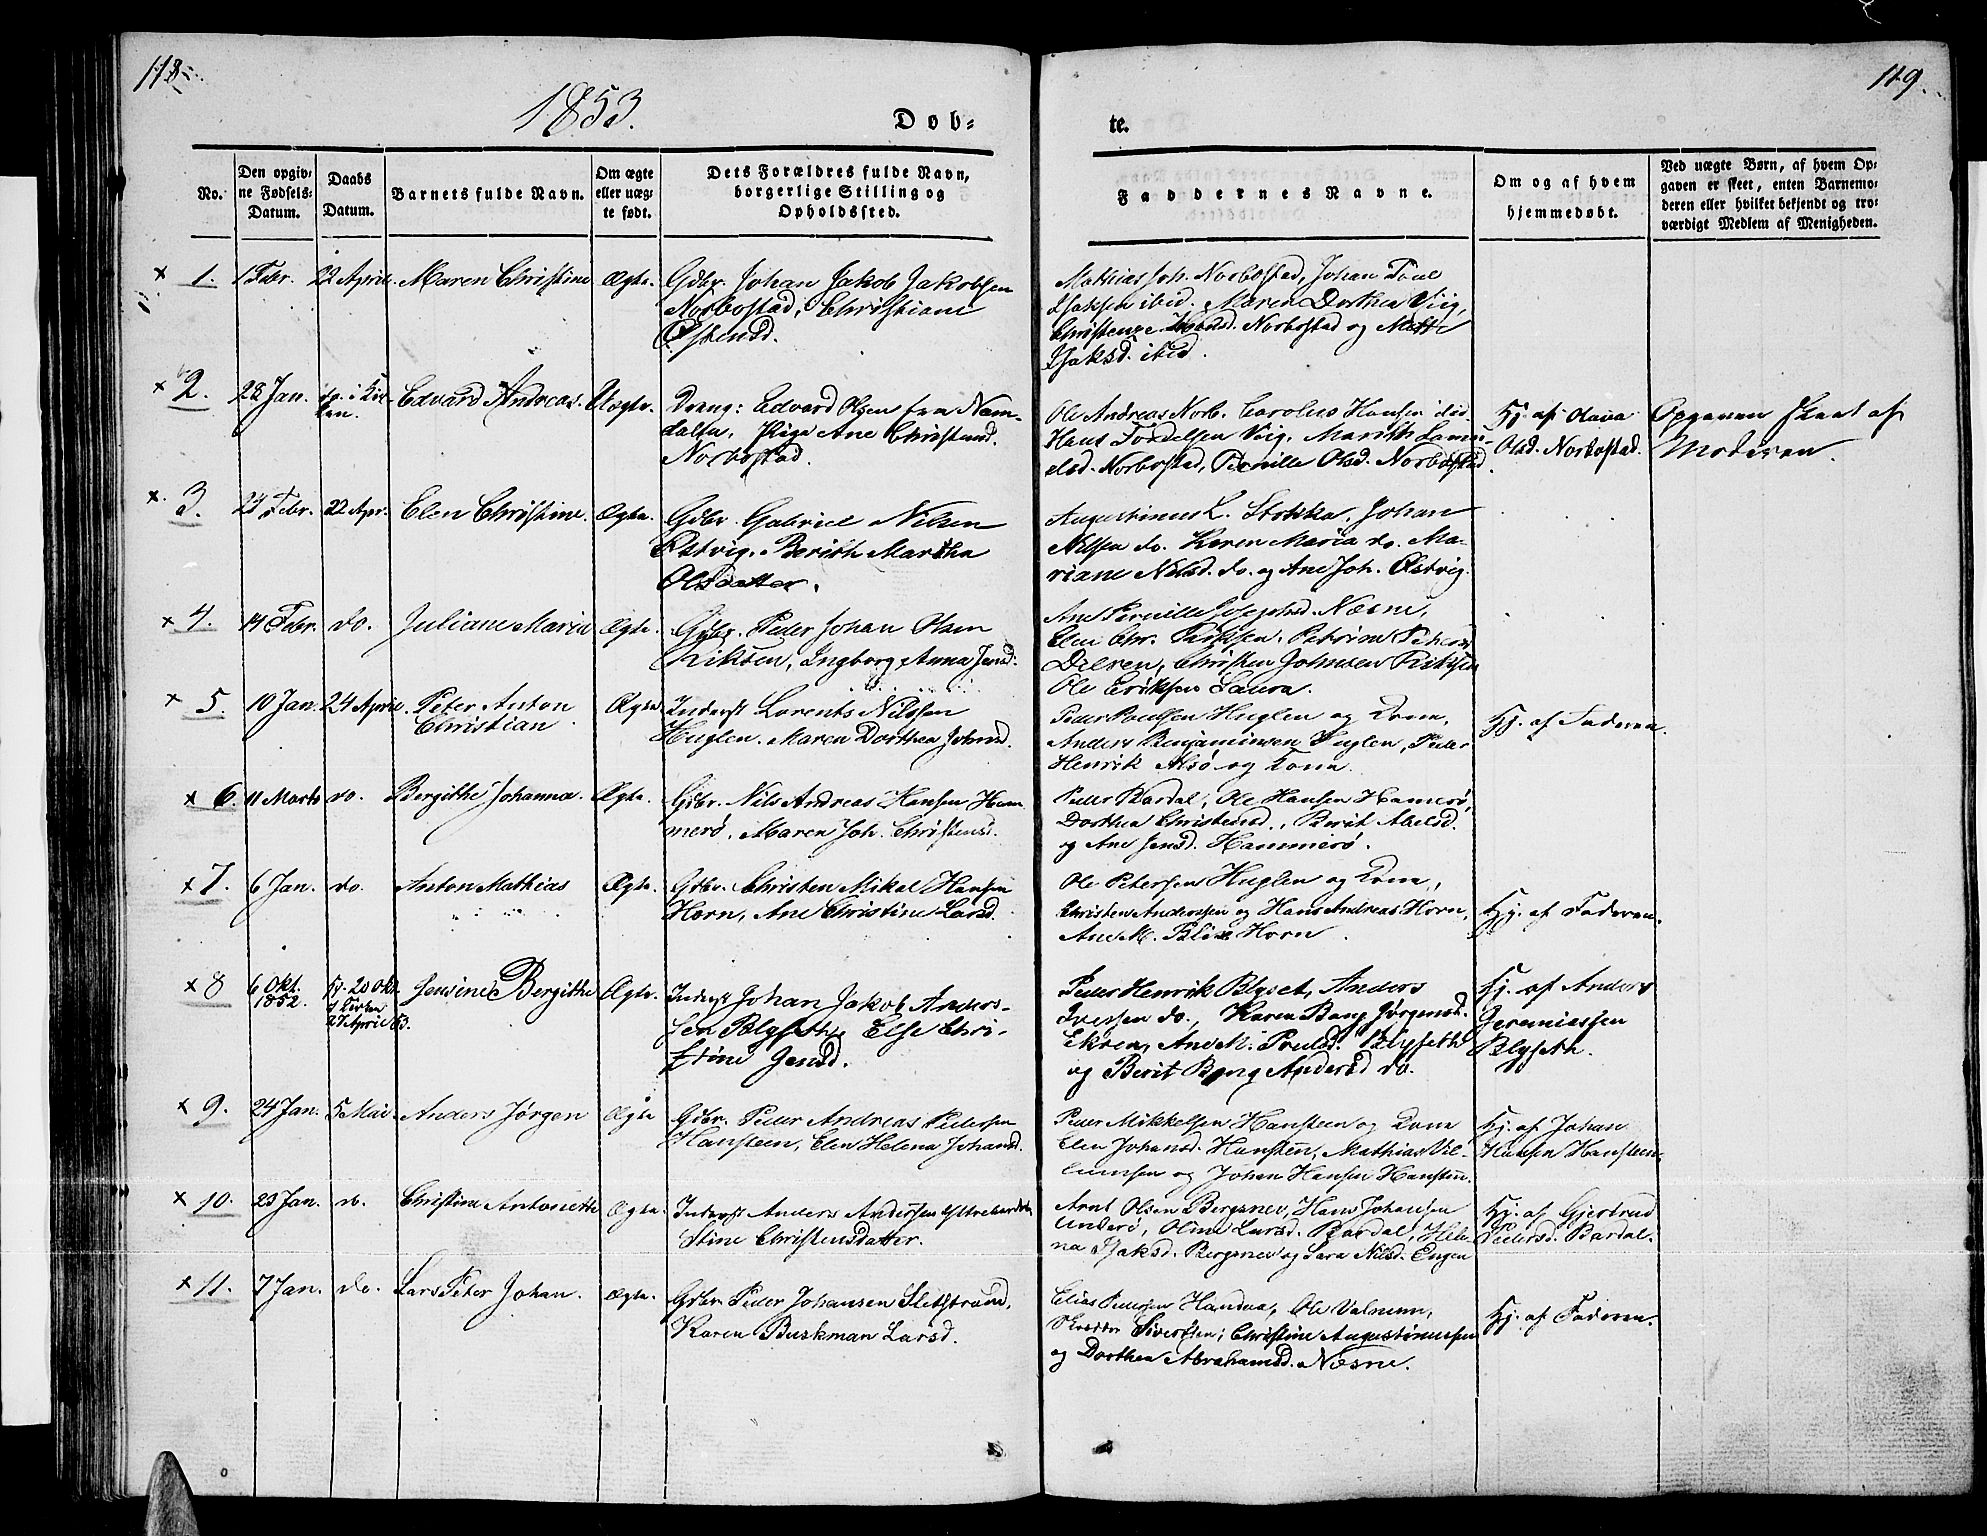 118
119.
1853.
Døb-
te.
No.
Den opgiv-
ne Fødsels-
Datum.
Daabs
Datum.
Barnets fulde Navn.
Om ægte
eller uæg-
te født.
Dets Forældres fulde Navn,
borgerlige Stilling og
Opholdssted.
Faddernes Navne.
Om og af hvem
hjemmedøbt.
Ved uægte Børn, af hvem Op-
gaven er skeet, enten Barnemo-
deren eller hvilket bekjendt og tro-
værdigt Medlem af Menigheden.
x 1. 1 Febr. 22 April. Maren Christine Ægte. Gdbr. Johan Jakob Jakobsen
Norbostad, Christiane
Østensd.
Mathias Joh. Norbostad, Johan
Isaksen ibid. Maren Dorthea Viig,
Christense Norbostad og Mette
Isaksd. ibid.
x 2. 28 Jan. do. i Kir-
ken. Edvard Andreas. Uægte. Dreng: Edvard Olsen fra Nam-
dalen, Pige Ane Christensd.
Norbostad.
Ole Andreas Norb. Carolus Hansen ibid
Hans Viig, Marith Samu-
elsd. Norbostad, Pernille Olsd. Norbostad
Hj. af Olava
Olsd. Norbostad.
Opgaven skeet af
Moderen.
x 3. 24 Febr. 22 Apr. Elen Christine. Ægte. Gdbr. Gabriel Nilsen
Østvig. Berith Martha
Olsdatter.
Augustinus L. Stokka, Johan
Nilsen do. Karen Maria do. Ma-
riane Nilsd. do. og Ane Joh. Østvig.
x 4. 14 Febr. do. Juliane Maria Ægte. Gdbr. Peder Johan Olsen
Riksen, Ingborg Anna Jensd.
Ane Pernille Josephsd. Næsne,
Elen Chr. Petrine Peders.
Christen Johnsen
Ole Eriksen Laura.
x 5. 10 Jan. 24 April. Peter Anton
Christian Ægte Inderst Lorents Nilssen
Huglen. Maren Dorthea Johnsd.
Peder Poulsen Huglen og Kone,
Anders Benjaminsen Huglen, Peder
Henrik Alsø og Kone.
Hj. af Faderen.
x 6. 11 Marts do. Bergithe Johanna. Ægte. Gdbr. Nils Andreas Hansen Ham-
merø, Maren Joh. Christensd.
Peder Bardal, Ole Hansen Hamerø,
Dorthea Christensd., Berit Abelsd.
og Ane Jensd. Hammerø.
x 7. 6 Jan. do. Anton Mathias Ægte. Gdbr. Christen Mikal Hansen
Horn, Ane Christine Larsd.
Ole Petersen Huglen og Kone,
Christen Anderssen og Hans Andreas Horn,
Ane M. Blix Horn.
Hj. af Faderen.
x 8 6 Okt.
1852. Hj. 20 Okt.
i Kirken
27 April 53. Jensine Bergithe Ægte. Inderst Johan Jakob Anders-
sen Blyseth, Else Chri-
stine Jensd.
Peder Henrik Blyset, Anders
do., Karen Bang Jørgensd.
Ekren, Ane M. Poulsd. Blyseth
og Berit Bang Andersd do.
Hj. af Anders
Jeremiassen
Blyseth.
x 9. 24 Jan. 5 Mai. Anders Jørgen Ægte Gdbr. Peder Andreas Pedersen
Hansteen, Elen Helena Johansd.
Peder Mikkelsen Hansteen og Kone
Elen Johansd. Hansteen, Mathias Vil-
lumsen og Johan Hansen Hansteen.
Hj. af Johan
Hansen Hansteen.
x 10. 23 Jan. do. Christine Antonette Ægte. Inderst Anders Andersen
Stine Christensdatter.
Arnt Olsen Bergsnev, Hans Johansen
Underø, Oline Larsd. Bardal, Hele-
na Isaksd. Bergsnev og Sara Nilsd. Engen
Hj. af Gjertrud
Pedersd. Bardal.
x 11. 7 Jan. do. Lars Peter Johan. Ægte. Gdbr. Peder Johansen Sletstrand,
Karen Buskman Larsd.
Elias Pedersen Handnæ, Ole
Sivertsen, Christine Augustinussen
og Dorthea Abrahamsd. Næsne.
Hj. af Faderen.